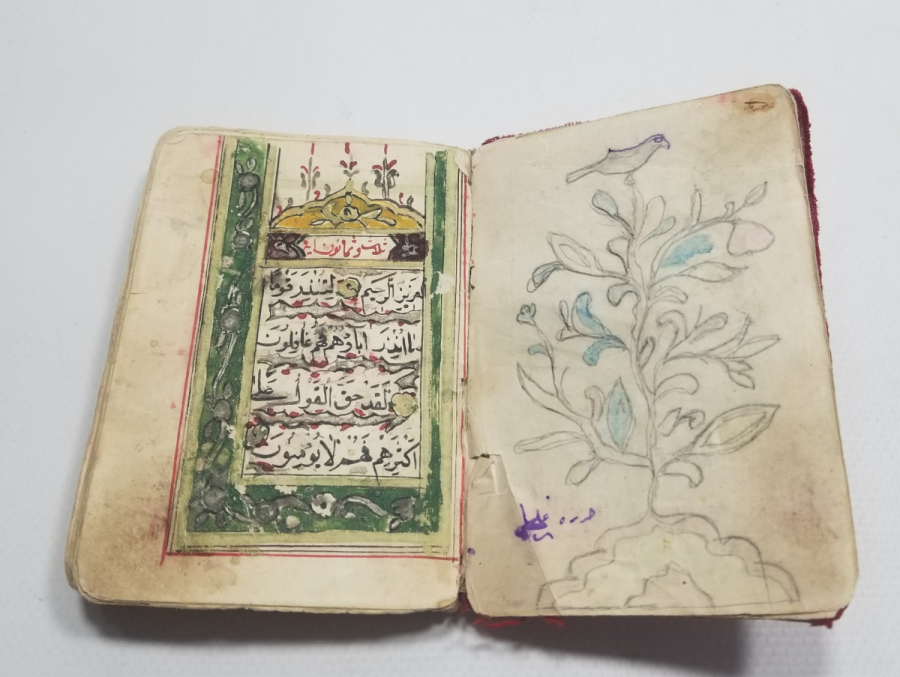 ثلاث و ثمانون اية
العزيز الرحيم لتنذر قوما
ما انذر اباؤهم فهم غافلون
لقد حق القول على
اكثرهم فهم لا يومنون